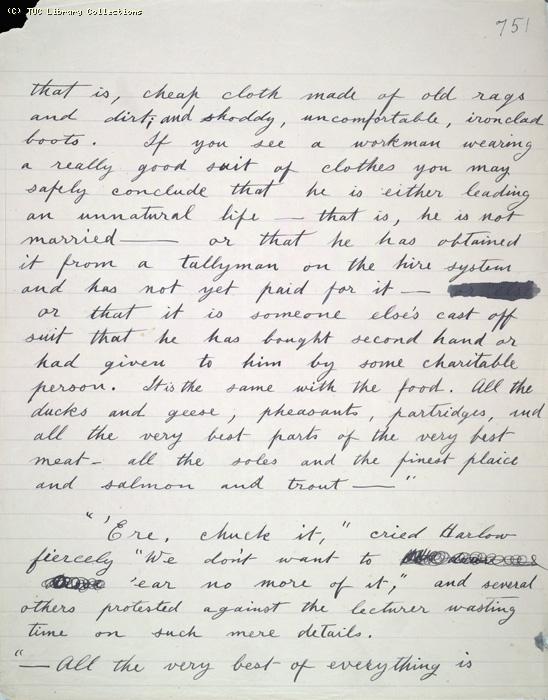 (C) TUC Library Collections
751
that is, cheap cloth made of old rags
and dirt; and shoddy, uncomfortable, ironclad
boots. If you see a workman wearing
a really good suit of clothes you may
safely conclude that he is either leading
an unnatural life — that is, he is not
married — or that he has obtained
it from a tallyman on the hire system
and has not yet paid for it —
or that it is someone else's cast off
suit that he has bought second hand or
had given to him by some charitable
person. It is the same with the food. All the
ducks and geese, pheasants, partridges, and
all the very best parts of the very best
meat - all the soles and the finest plaice
and salmon and trout — "
"'Ere, chuck it," cried Harlow
fiercely "We don't want to
'ear no more of it," and several
others protested against the lecturer wasting
time on such mere details.
"— All the very best of everything is